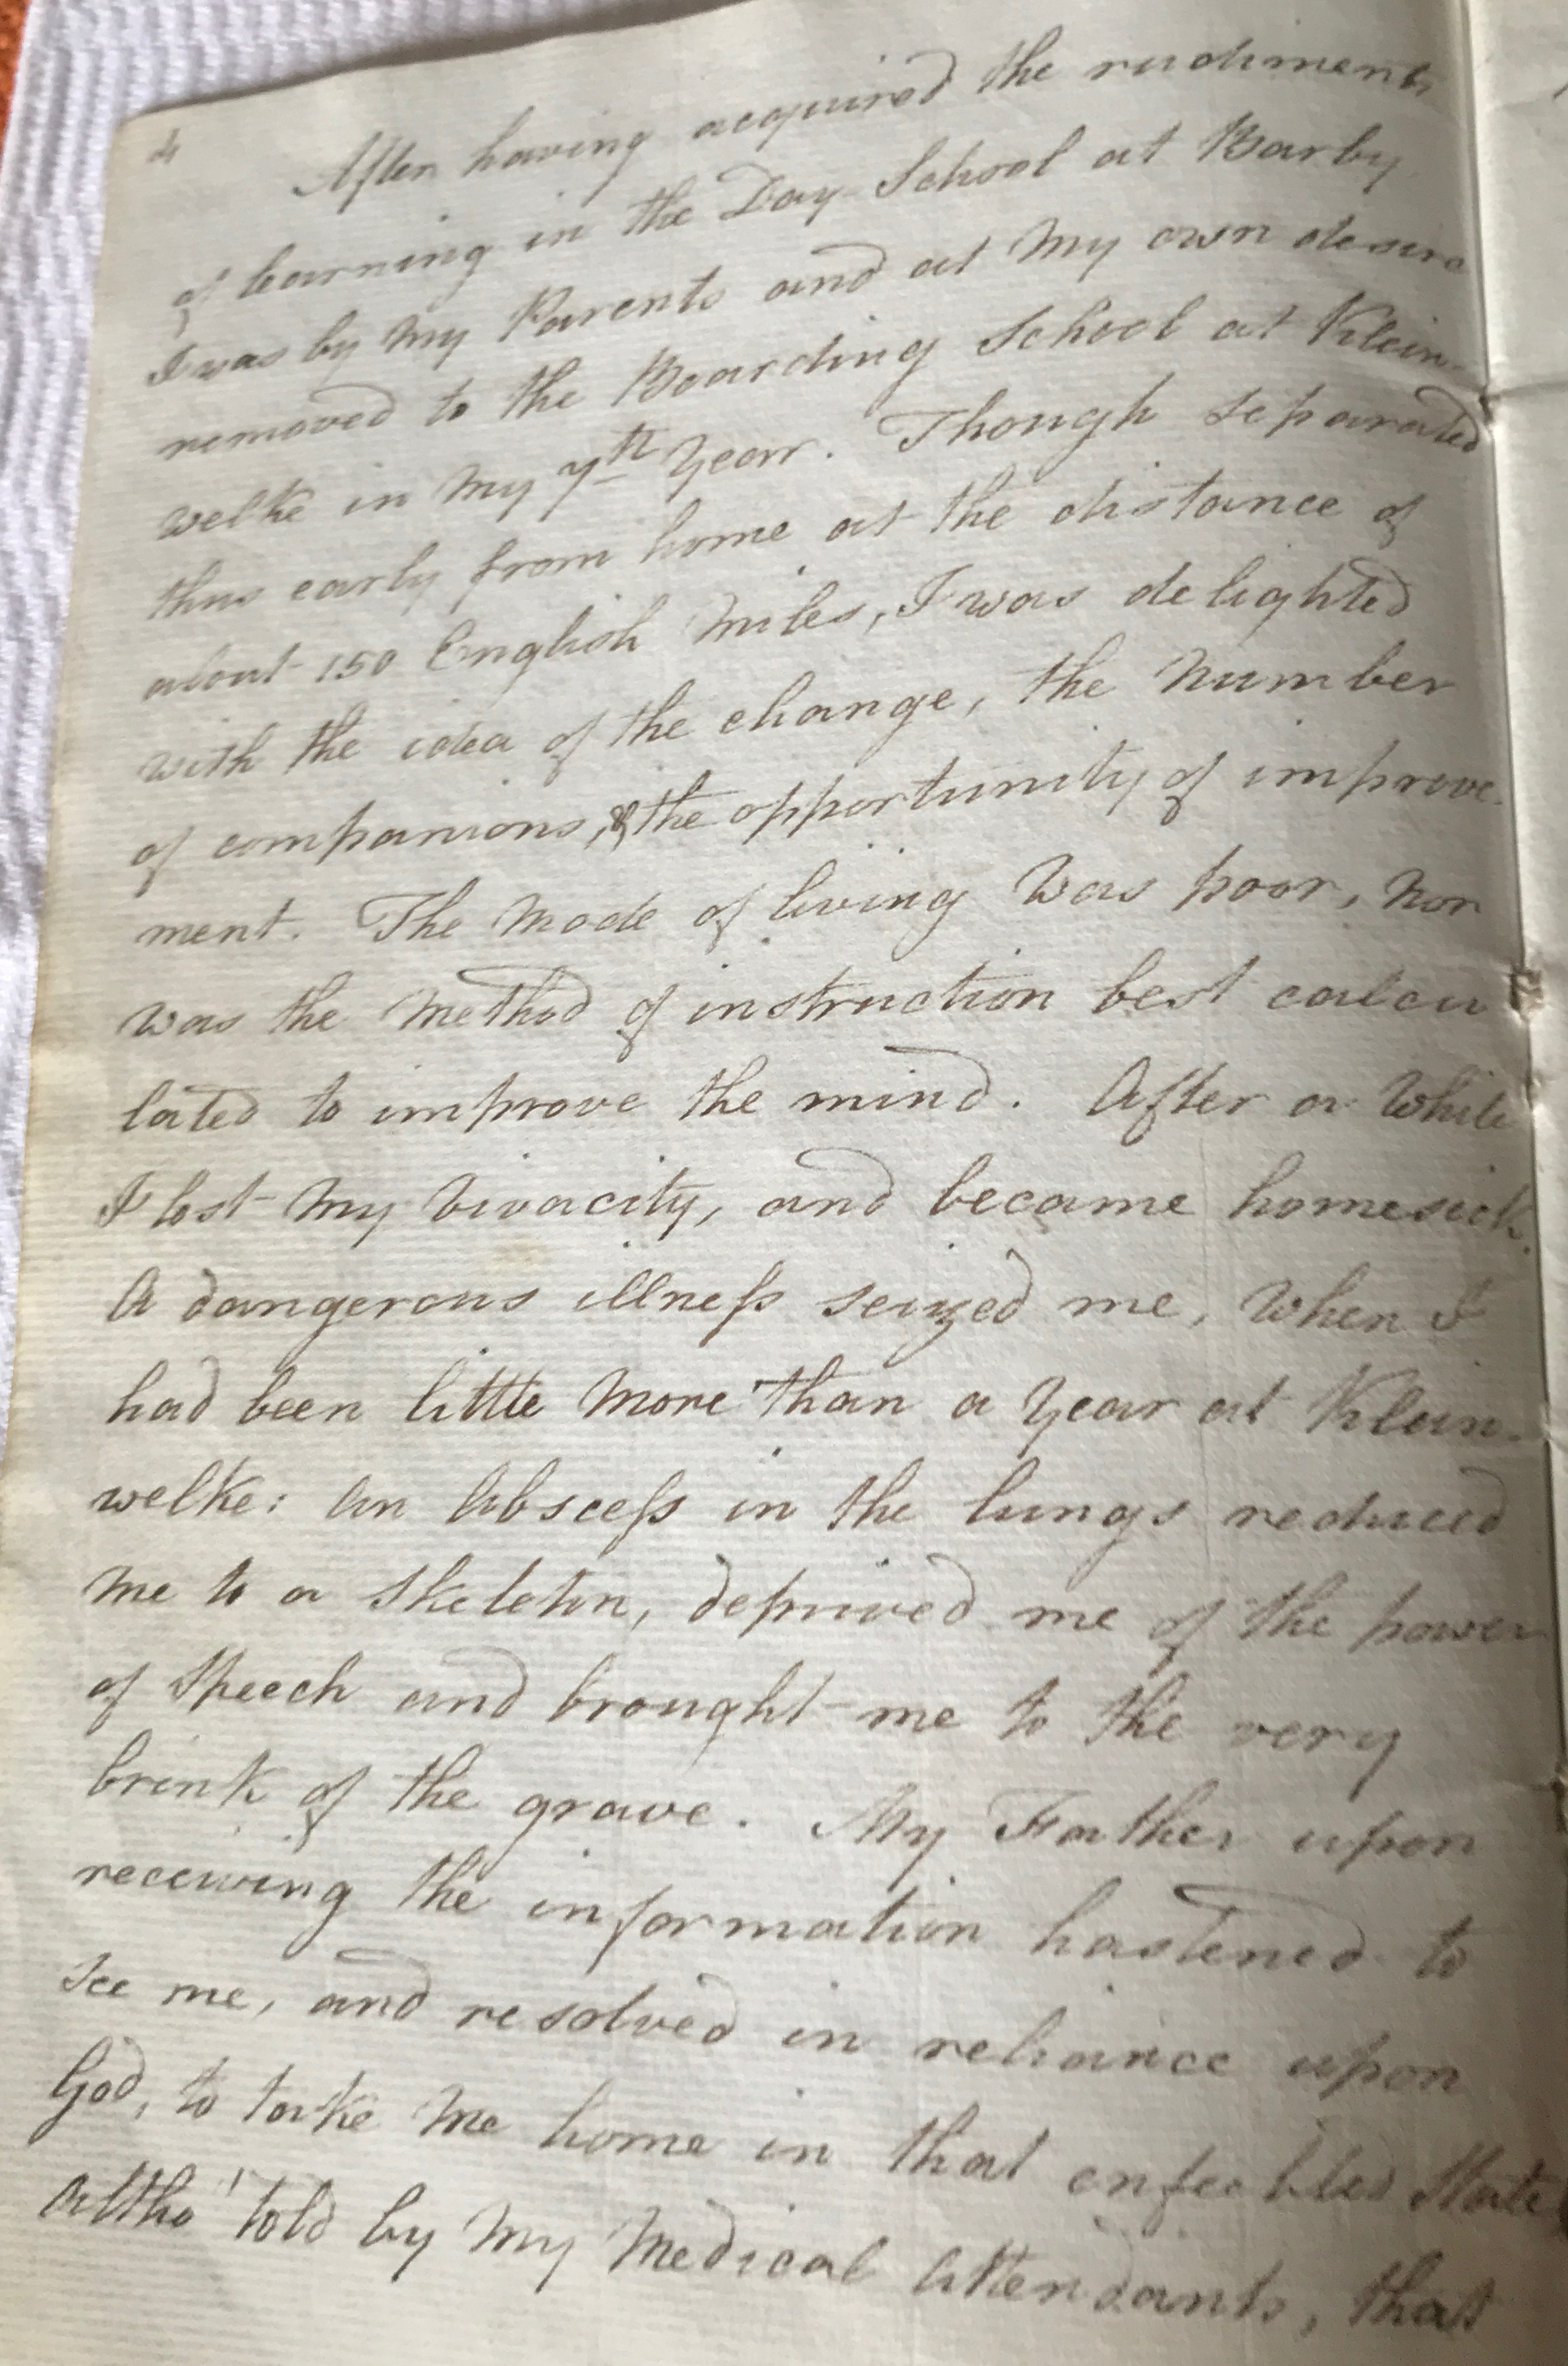 4
After having acquired the rudiments
of learning in the Day-School at Barby
I was by my Parents and at my own desire
removed to the Boarding School at Klein-
welke in my 7th Year. Though separated
thus early from home at the distance of
about 150 English Miles, I was delighted
with the idea of the change, the Number
of companions, & the opportunity of improve-
ment. The Mode of living was poor, nor
was the Method of instruction best calcu
lated to improve the mind. After a while
I lost my vivacity, and became homesick.
A dangerous illneſs seized me, when I
had been little more than a Year at Klein-
welke: an Absceſs in the lungs reduced
me to a Skeleton, deprived me of the power
of Speech and brought me to the very
brink of the grave. My Father upon
receiving the information hastened to
see me, and resolved in reliance upon
God, to take me home in that enfeebled State
altho' told by my Medical Attendants, that